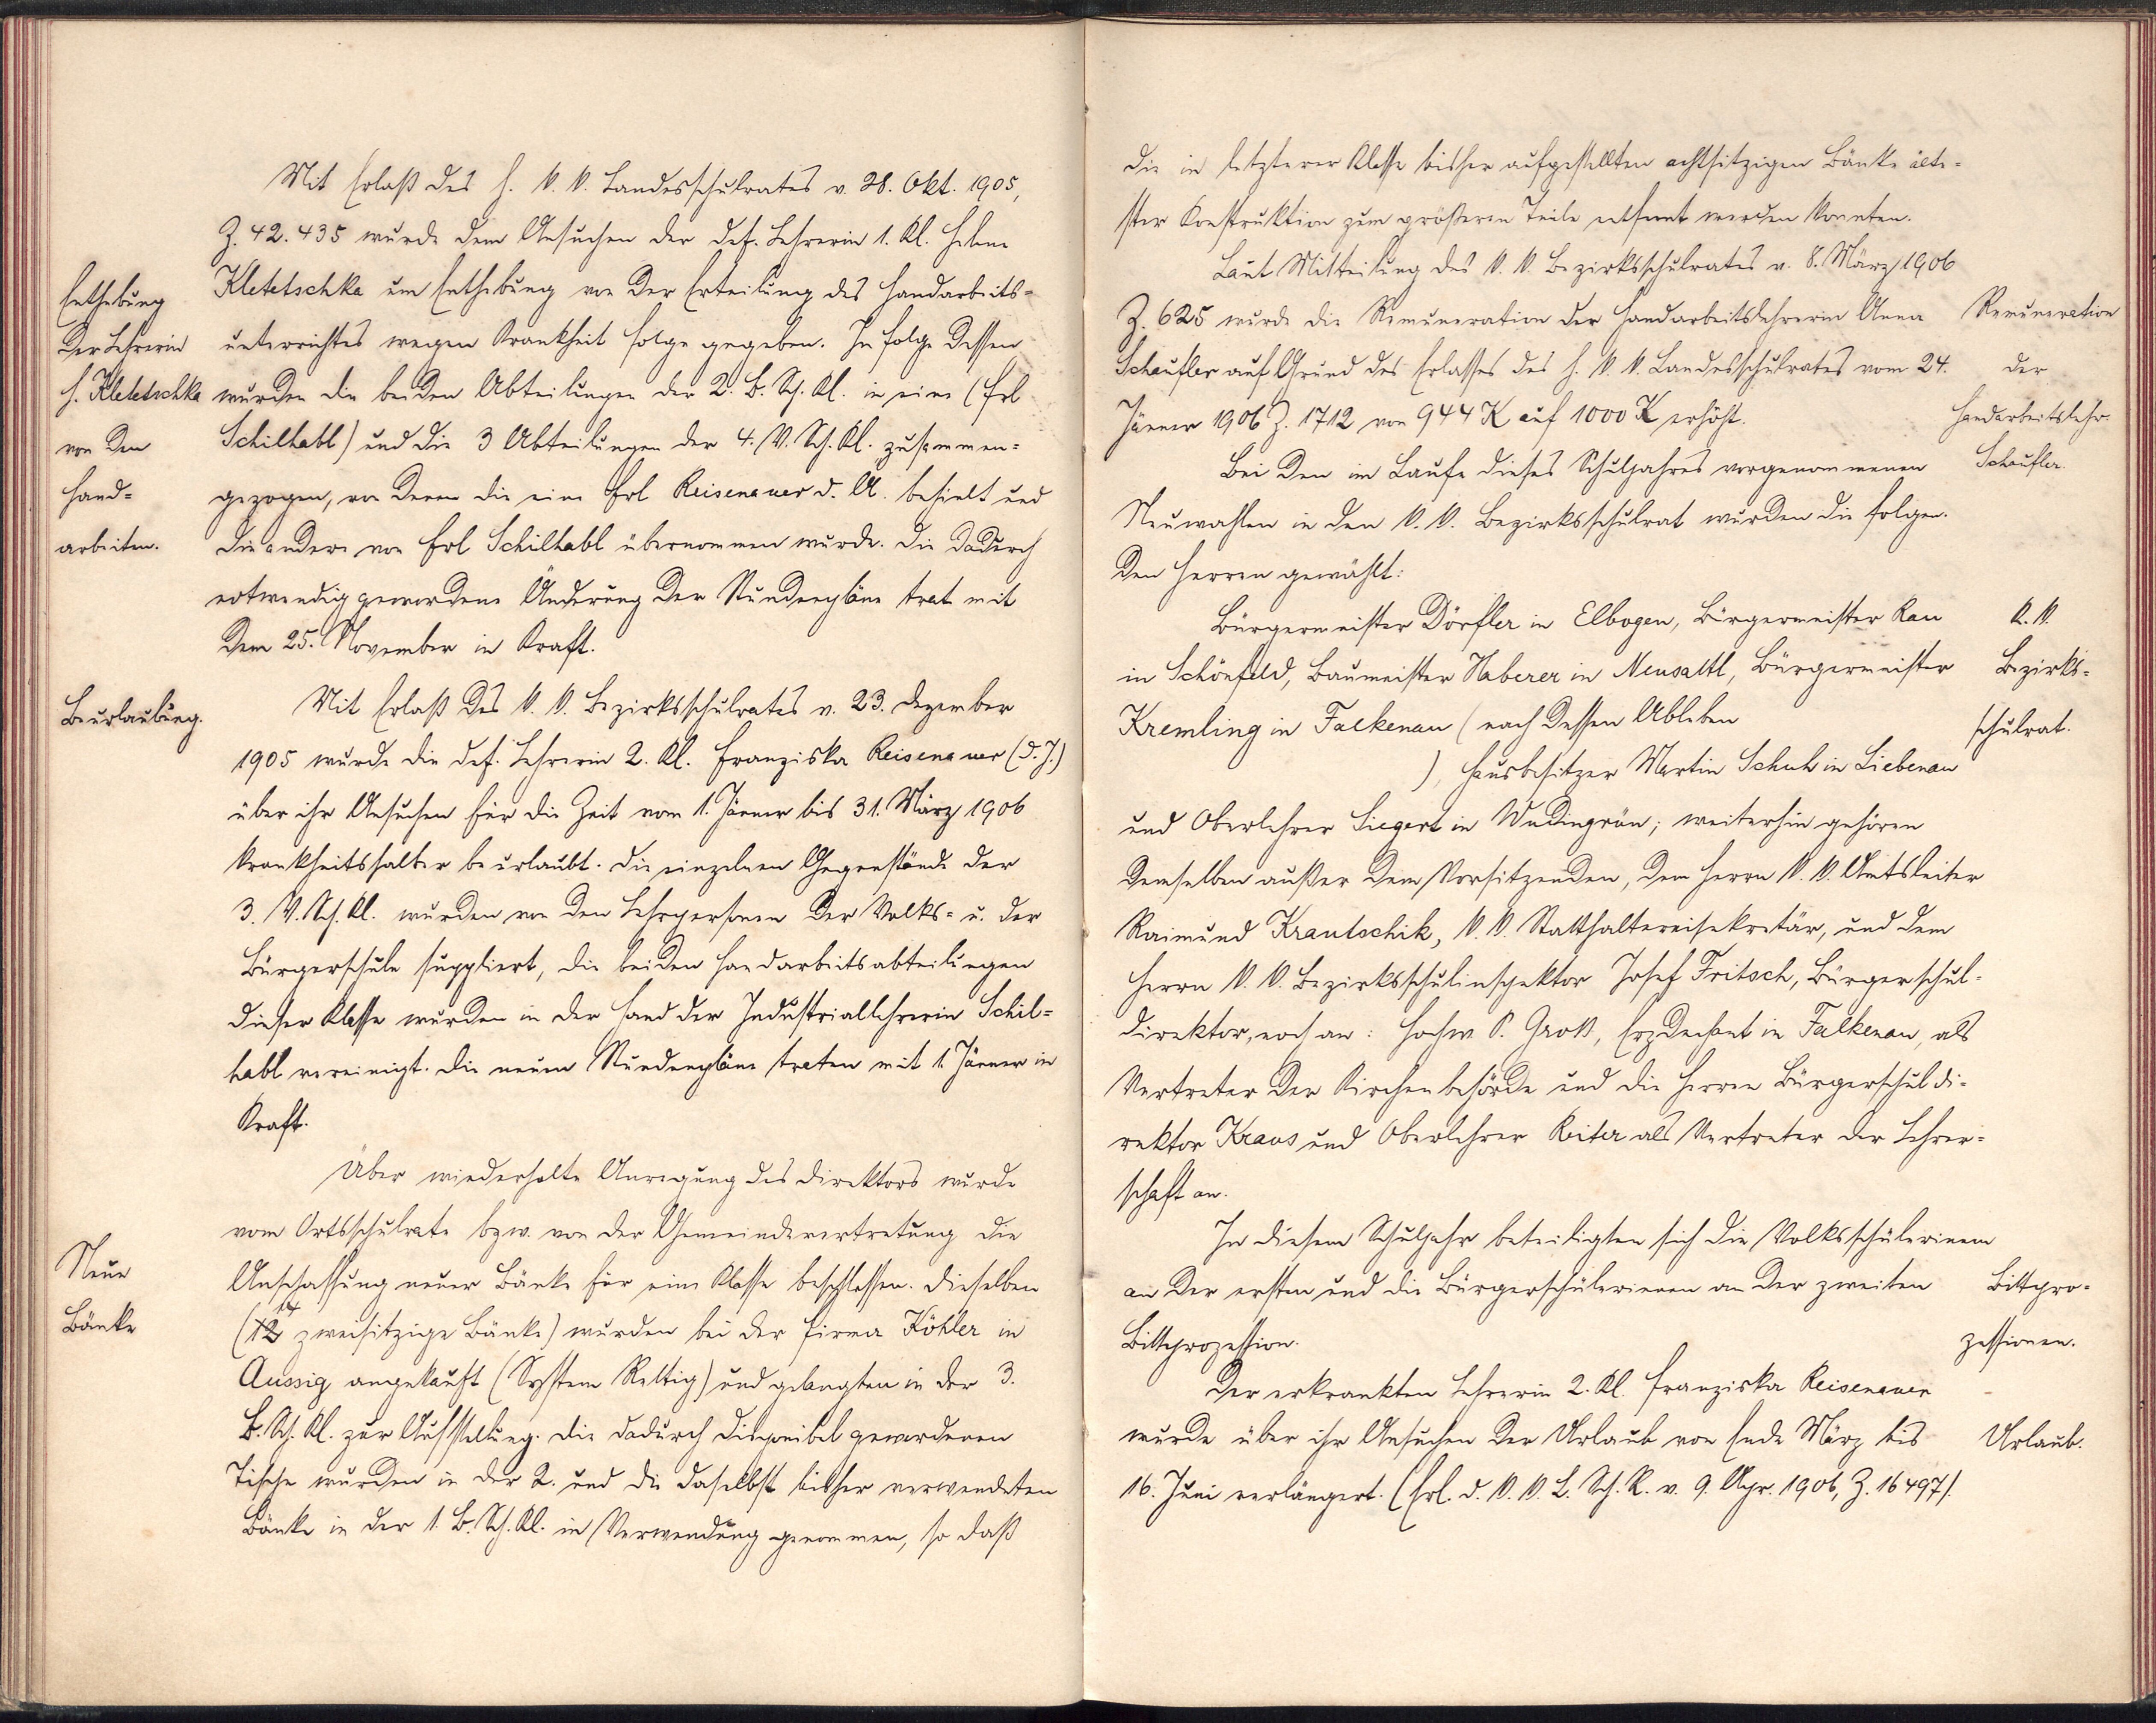 Mit Erlaß des h. k. k. Landesschulrates v. 28. Okt. 1905,
Z. 42.435 wurde dem Ansuchen der def. Lehrerin 1. Kl. Helene
Kletetschka um Enthebung von der Erteilung des Handarbeits-
unterrichtes wegen Krankheit Folge gegeben. In folge dessen
wurden die beiden Abteilungen der 2. B. Sch. Kl. in eine (Frl
Schilhabl) und die 3 Abteilungen der 4. V. Sch. Kl. zusammen-
gezogen, von denen die eine Frl Reisenauer d. Ä. behielt und
die andere von Frl Schilhabl übernommen wurde. Die dadurch
notwendig gewordene Änderung der Stundenpläne trat mit
dem 25. November in Kraft.
Enthebung
der Lehrerin
H. Kletetschka
von den
Hand-
arbeiten.
Mit Erlaß des k. k. Bezirksschulrates v. 23. Dezember
1905 wurde die def. Lehrerin 2. Kl. Franziska Reisenauer (d. J.)
über ihr Ansuchen für die Zeit vom 1. Jänner bis 31. März 1906
krankheitshalber beurlaubt. Die einzelnen Gegenstände der
3. V. Sch. Kl. wurden von den Lehrpersonen der Volks- u. der
Bürgerschule suppliert, die beiden Handarbeitsabteilungen
dieser Klasse wurden in der Hand der Industriallehrerin Schil-
habl vereinigt. Die neuen Stundenpläne traten mit 1. Jänner in
Kraft.
Beurlaubung.
Über wiederholte Anregung des Direktors wurde
vom Ortsschulrate bzw. von der Gemeindevertretung die
Anschaffung neuer Bänke für eine Klasse beschlossen. Dieselben
(12 zweisitzige Bänke) wurden bei der Firma Köhler in
Aussig angekauft (System Rettig) und gelangten in der 3.
B. Sch. Kl. zur Aufstellung. Die dadurch disponibel gewordenen
Tische wurden in der 2. und die daselbst bisher verwendeten
Bänke in der 1. B. Sch. Kl. in Verwendung genommen, so daß
Neue
Bänke
die in letzterer Klasse bisher aufgestellten achtsitzigen Bänke älte-
ster Konstruktion zum größeren Teile entfernt werden konnten.
Laut Mitteilung des k. k. Bezirksschulrates v. 8. März 1906
Z. 625 wurde die Remuneration der Handarbeitslehrerin Anna
Schaufler auf Grund des Erlasses des h. k. k. Landesschulrates vom 24.
Jänner 1906 Z. 1712 von 944 K auf 1000 K erhöht.
Remuneration
der
Handarbeitslehr.
Schaufler.
Bei den im Laufe dieses Schuljahres vorgenommenen
Neuwahlen in den k. k. Bezirksschulrat wurden die folgen-
den Herren gewählt:
Bürgermeister Dörfler in Elbogen, Bürgermeister Rau
in Schönfeld, Baumeister Haberer in Neusattl, Bürgermeister
Kremling in Falkenau (nach dessen Ableben
), Hausbesitzer Martin Schuh in Liebenau
und Oberlehrer Siegert in Wudingrün; weiterhin gehören
demselben außer dem Vorsitzenden, dem Herrn k. k. Amtsleiter
Raimund Krautschik, k. k. Statthaltereisekretär, und dem
Herrn k. k. Bezirksschulinspektor Josef Fritsch, Bürgerschul-
direktor, noch an: Hochw. P. Groß, Erzdechant in Falkenau, als
Vertreter der Kirchenbehörde und die Herren Bürgerschuldi-
rektor Kraus und Oberlehrer Reiter als Vertreter der Lehrer-
schaft an.
K. k.
Bezirks-
schulrat.
In diesem Schuljahr beteiligten sich die Volksschülerinnen
an der ersten und die Bürgerschülerinnen an der zweiten
Bittprozession.
Bittpro-
zessionen.
Der erkrankten Lehrerin 2. Kl. Franziska Reisenauer
wurde über ihr Ansuchen der Urlaub von Ende März bis
16. Juni verlängert. (Erl. d. k. k. L. Sch. R. v. 9. Apr. 1906, Z. 16497).
Urlaub.